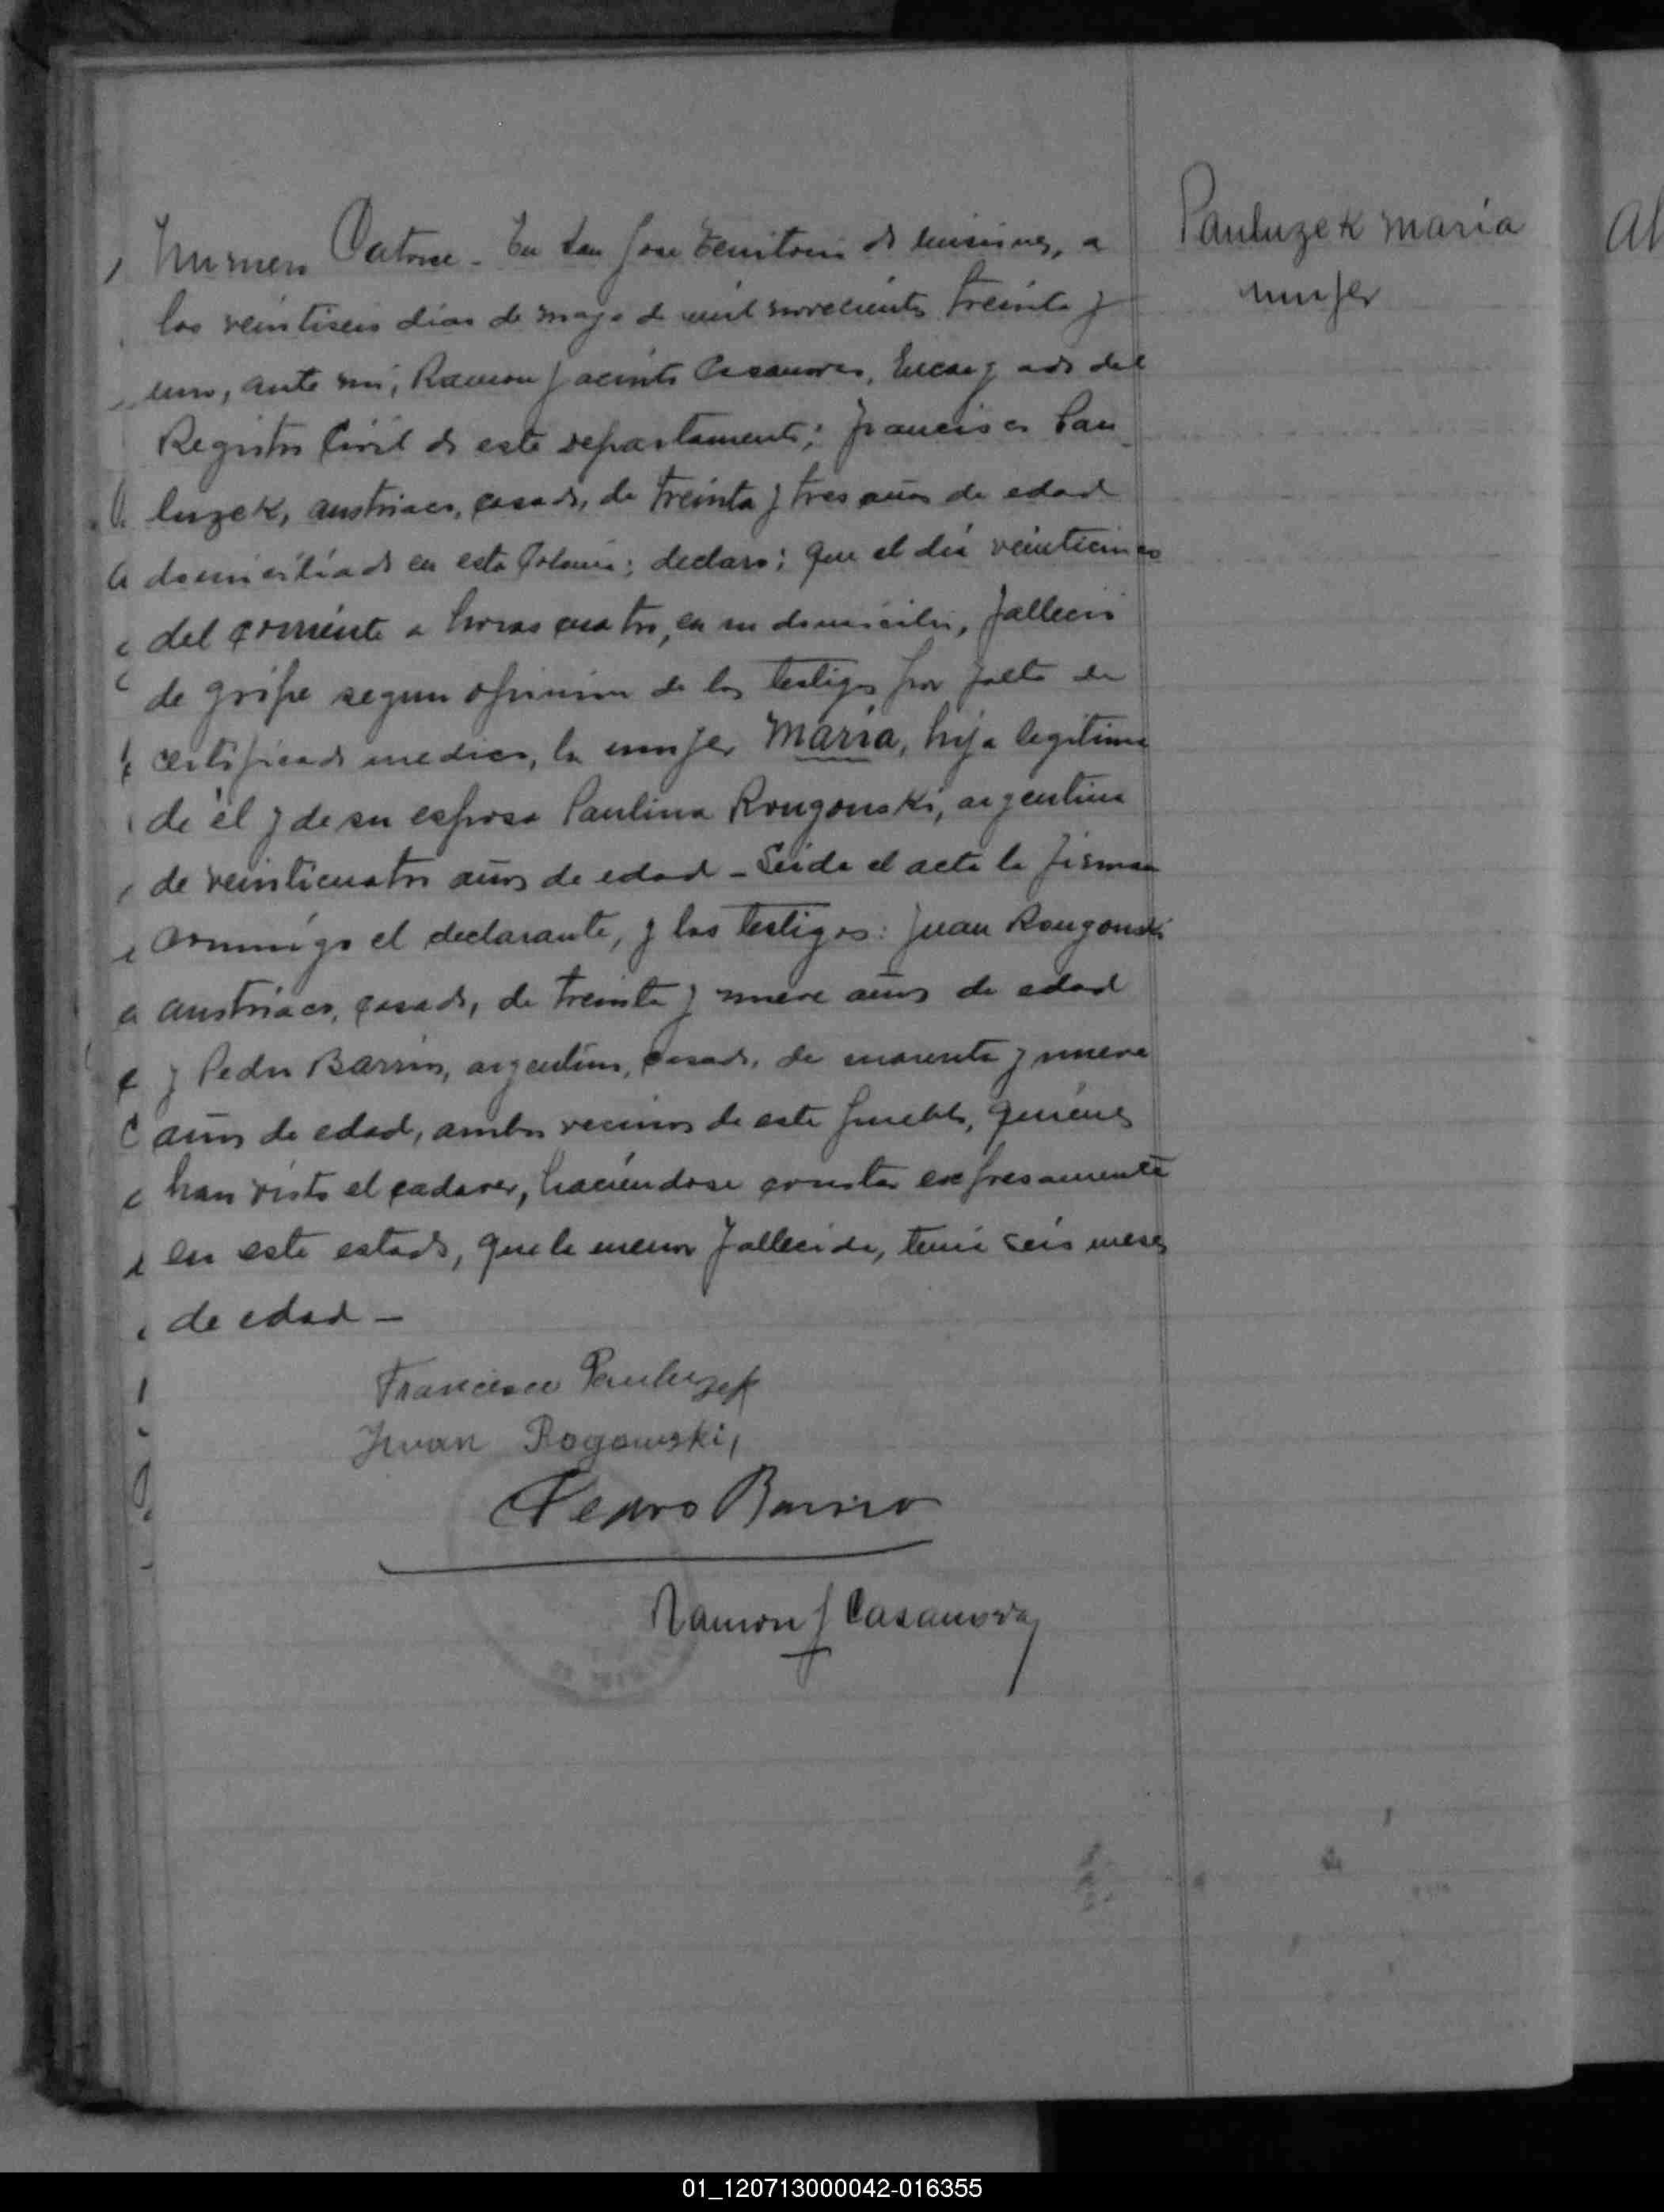 Numero Catorce - En San Jose Territorio de Misiones, a
los veintiseis dias de mayo de mil novecientos treinta y
uno, ante mi, Ramon Jacinto Casanova, Encargado del
Registro Civil de este departamento; Francisco Pau
luzek, austriaco, casado, de treinta y tres años de edad
domiciliado en esta Colonia; declaro; que el dia veinticinco
del corriente a horas cuatro, en su domicilio, fallecio
de gripe segun opinion de los testigos por falta de
certificado medico, la mujer Maria, hija legitima
de él y de su esposa Paulina Rongonski, argentina
de veinticuatro años de edad - Leida el acta la firman
conmigo el declarante, y los testigos: Juan Rongonski
austriaco, casado, de treinta y nueve años de edad
y Pedro Barrios, argentino, casado, de cuarenta y nueve
años de edad, ambos vecinos de este pueblo, quienes
han visto el cadaver, haciendose constar expresamente
en este estado, que la menor fallecida, tenia seis meses
de edad -
Francisco Pauluzek
Juan Rogowski,
Pedro Barrio
Ramon J Casanova
Pauluzek Maria
mujer
01_120713000042-016355